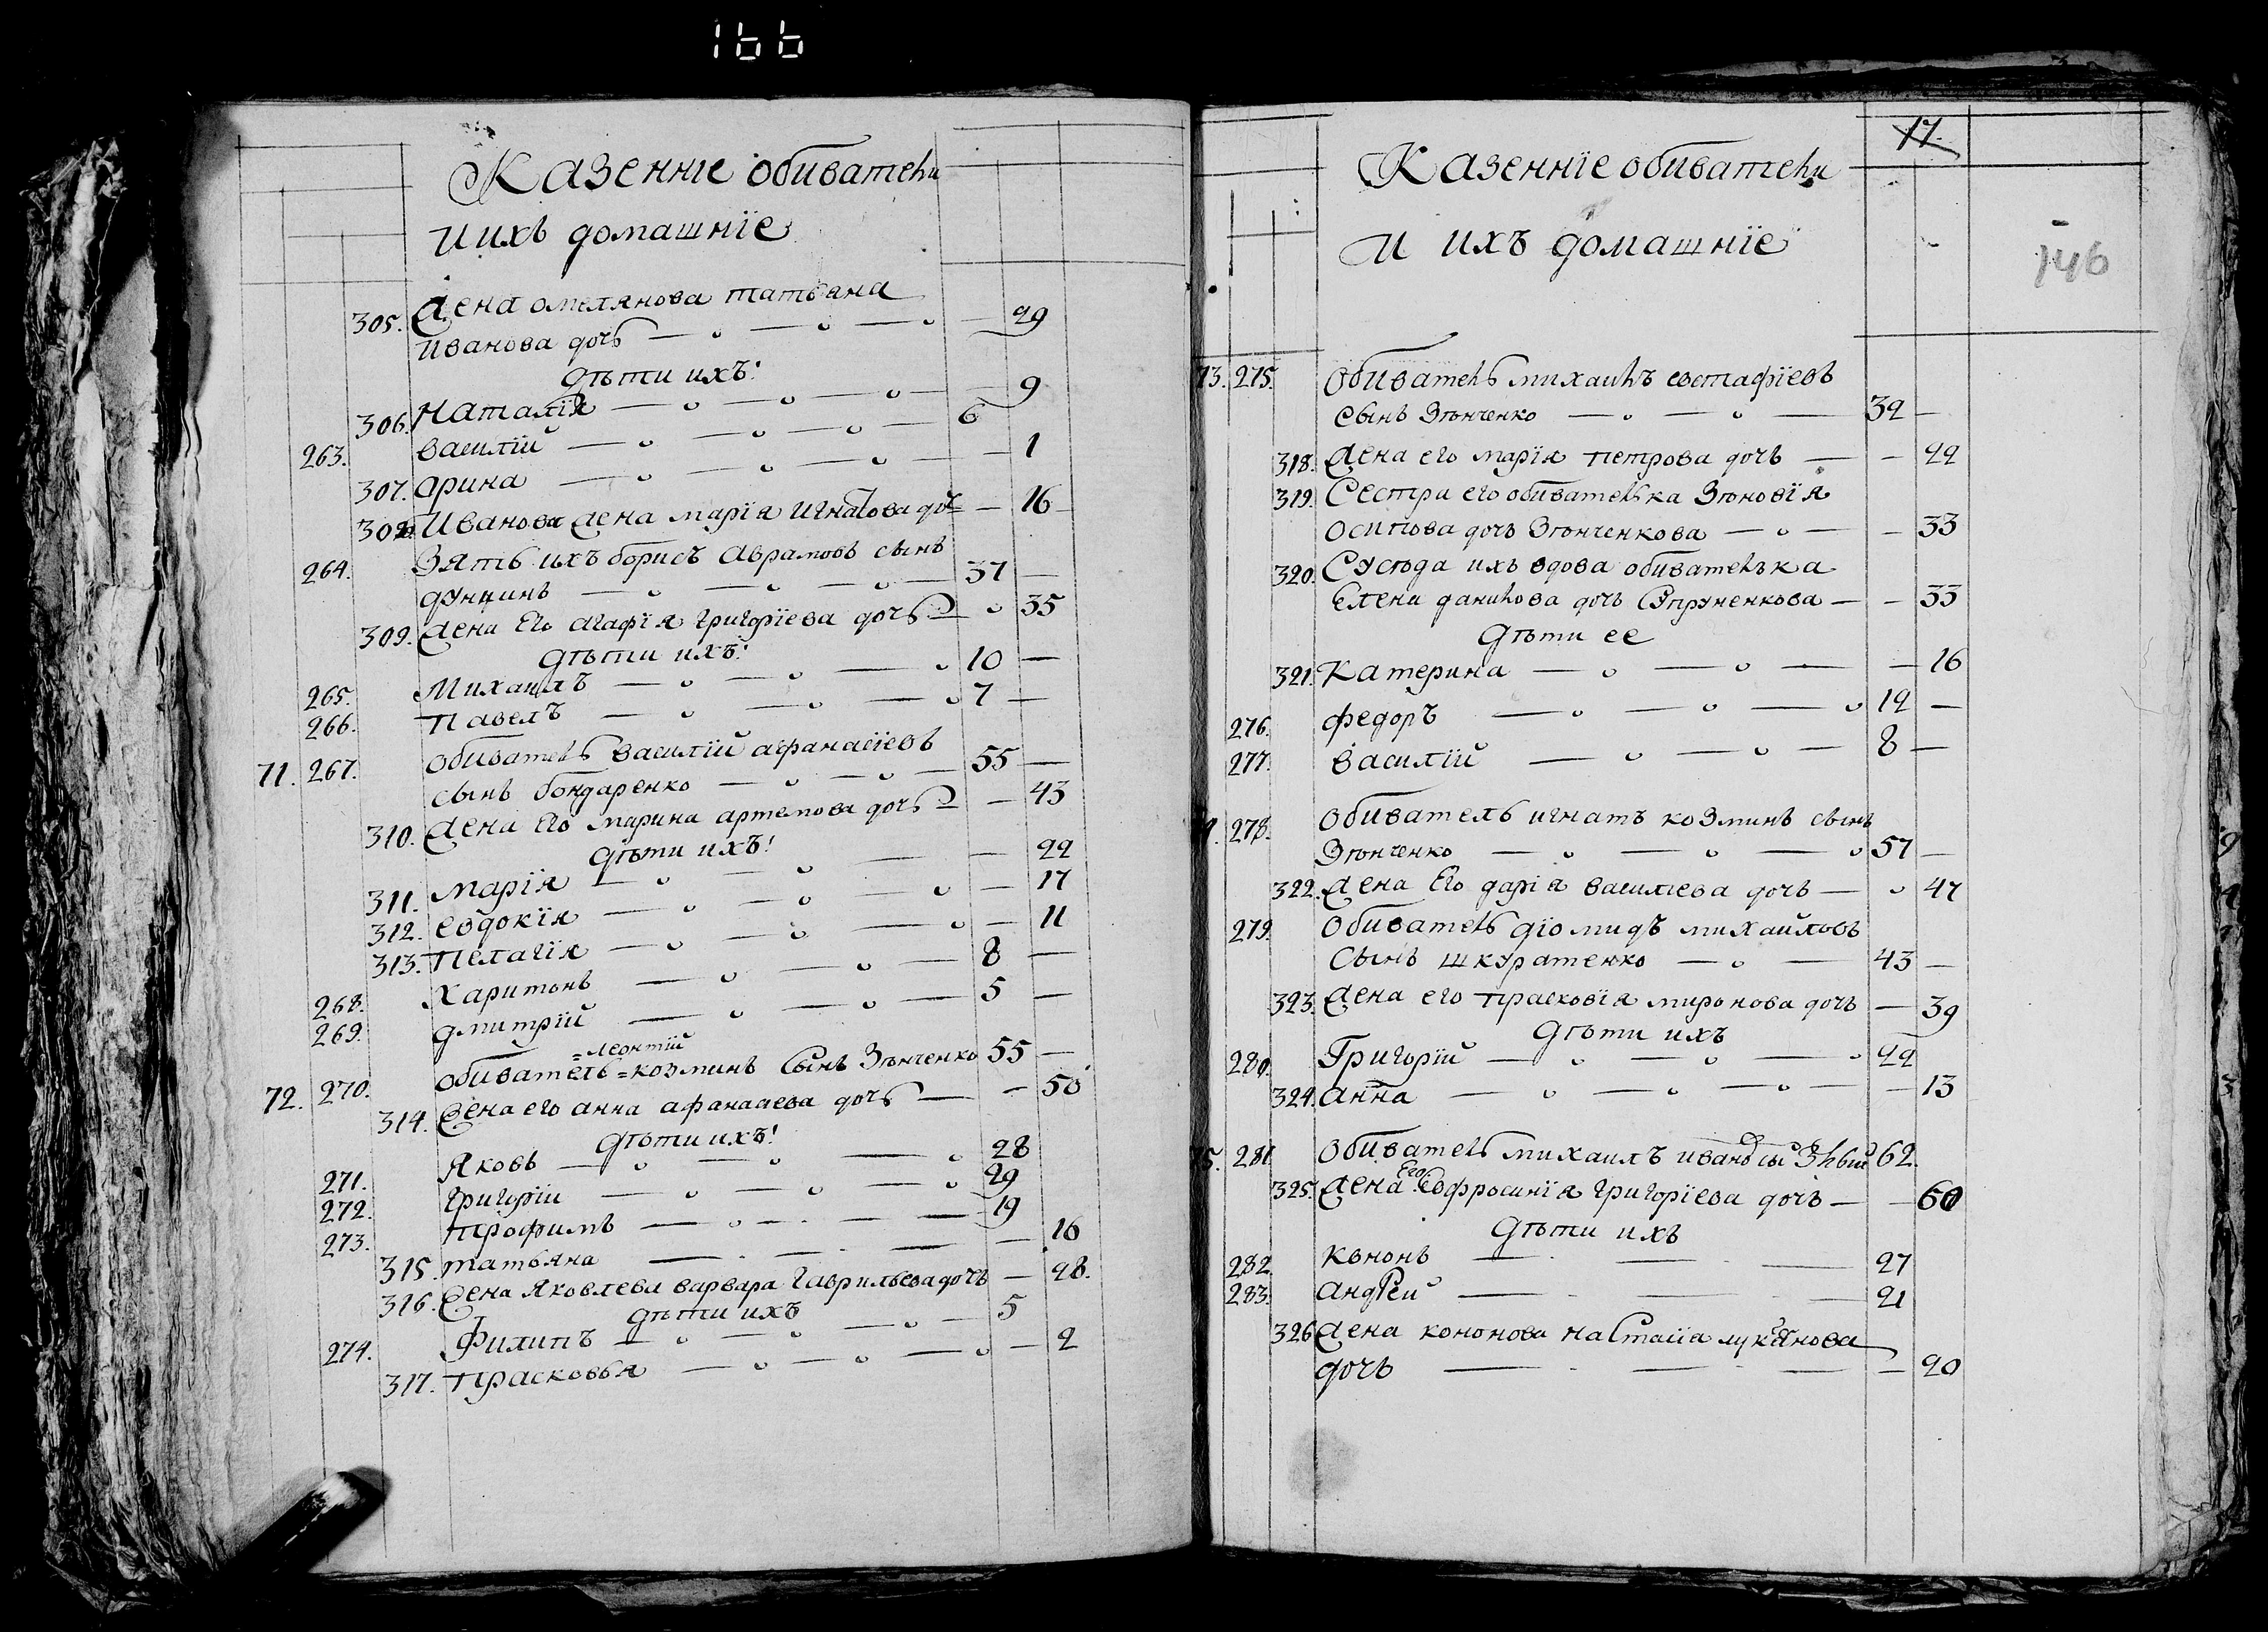 166
Казенніе обиватели
и ихъ домашніе
305. Жена омелянова татьяна
Иванова дочь — 29
Дѣти ихъ:
306. Наталія — 9
263. Василій — 6
307. Арина — 1
308. Иванова жена марія Игнатова дочь — 16
264. Зять ихъ борисъ Аврамовъ сынъ
дунцинъ — 37 —
309. Жена Его агафія григоріева дочь — 35
Дѣти ихъ:
265. Михаилъ — 10 —
266. Павелъ — 7 —
71. 267. Обиватель василій афанасіевъ
сынъ бондаренко — 55 —
310. Жена Его марина артемова дочь — 43
Дѣти ихъ:
311. Марія — 22
312. Евдокія — 17
313. Пелагія — 11
268. Харитонъ — 8 —
269. Дмитрій — 5 —
=леонтій
72. 270. Обиватель =козминъ Сынъ Зѣнченко 55 —
314. Жена его анна афанасиева дочь — 50
Дѣти ихъ:
271. Яковъ — 28
272. Григорій — 29
273. Трофимъ — 19
315. Татьяна — 16
316. Жена Яковлева варвара Гаврильева дочь — 28.
Дѣти ихъ
274. Филипъ — 5
317. Прасковья — 2
17.
Казенніе обивателя
И ихъ домашніе
146
73. 275. Обиватель михаилъ евстафіевъ
сынъ Зѣнченко — 32 —
318. Жена его марія петрова дочь — 22
319. Сестра его обивателька Зѣновія
осипова дочь Зѣнченкова — 33
320. Сусѣда ихъ вдова обивателька
Елена данилова дочь Супруненкова — 33
Дѣти ее
321. Катерина — 16
276. федоръ — 12 —
277. Василій — 8 —
278. Обиватель игнатъ козминъ сынъ
Зѣнченко — 57 —
322. Жена Его дарія василиева дочь — 47
279. Обиватель діомидъ михайловъ
Сынъ шкуратенко — 43 —
323. Жена его прасковія миронова дочь — 39
Дѣти ихъ
280. Григорій — 22
324. Анна — 13
75. 281. Обиватель михаилъ ивановъ сынъ 62.
Его
325. Жена Евфросинія григоріева дочь — 60
Дѣти ихъ
282. Кононъ — 27
283. Андрей — 21
326. Жена кононова настасія лукянова
дочь — 20